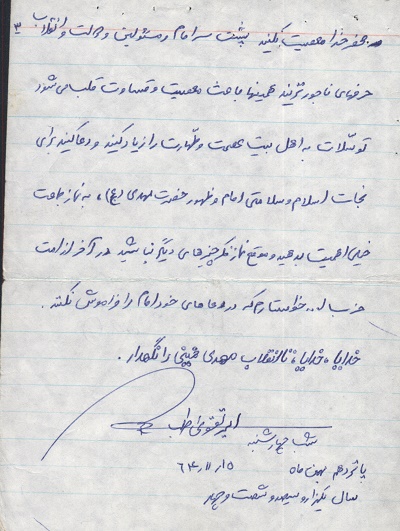 ۳
محضر خدا معصیت نکنید پشت سر امام و مسئولین و دولت و انقلاب
حرفهای ناجور نزنید همینها باعث معصیت و قساوت قلب می شود
توسلات به اهل بیت عصمت و طهارت را زیاد کنید و دعا کنید برای
نجات اسلام و سلامتی امام و ظهور حضرت مهدی (عج)، به نماز جماعت
خیلی اهمیت بدهید و موقع نماز فکر چیزهای دیگر نباشید در آخر از امت
حزب ا... خواستارم که در دعاهای خود امام را فراموش نکنند.
خدایا، خدایا، تا انقلاب مهدی خمینی را نگهدار.
امیر تقی
شب چهارشنبه
پانزدهم بهمن ماه ۶۴،۱۱،۱۵
سال یکهزار و سیصد و شصت و چهار